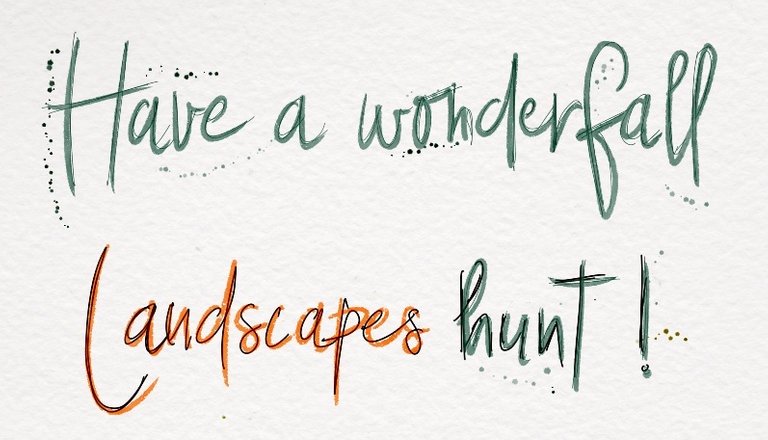 Have a wonderfall
Landscapes hunt !